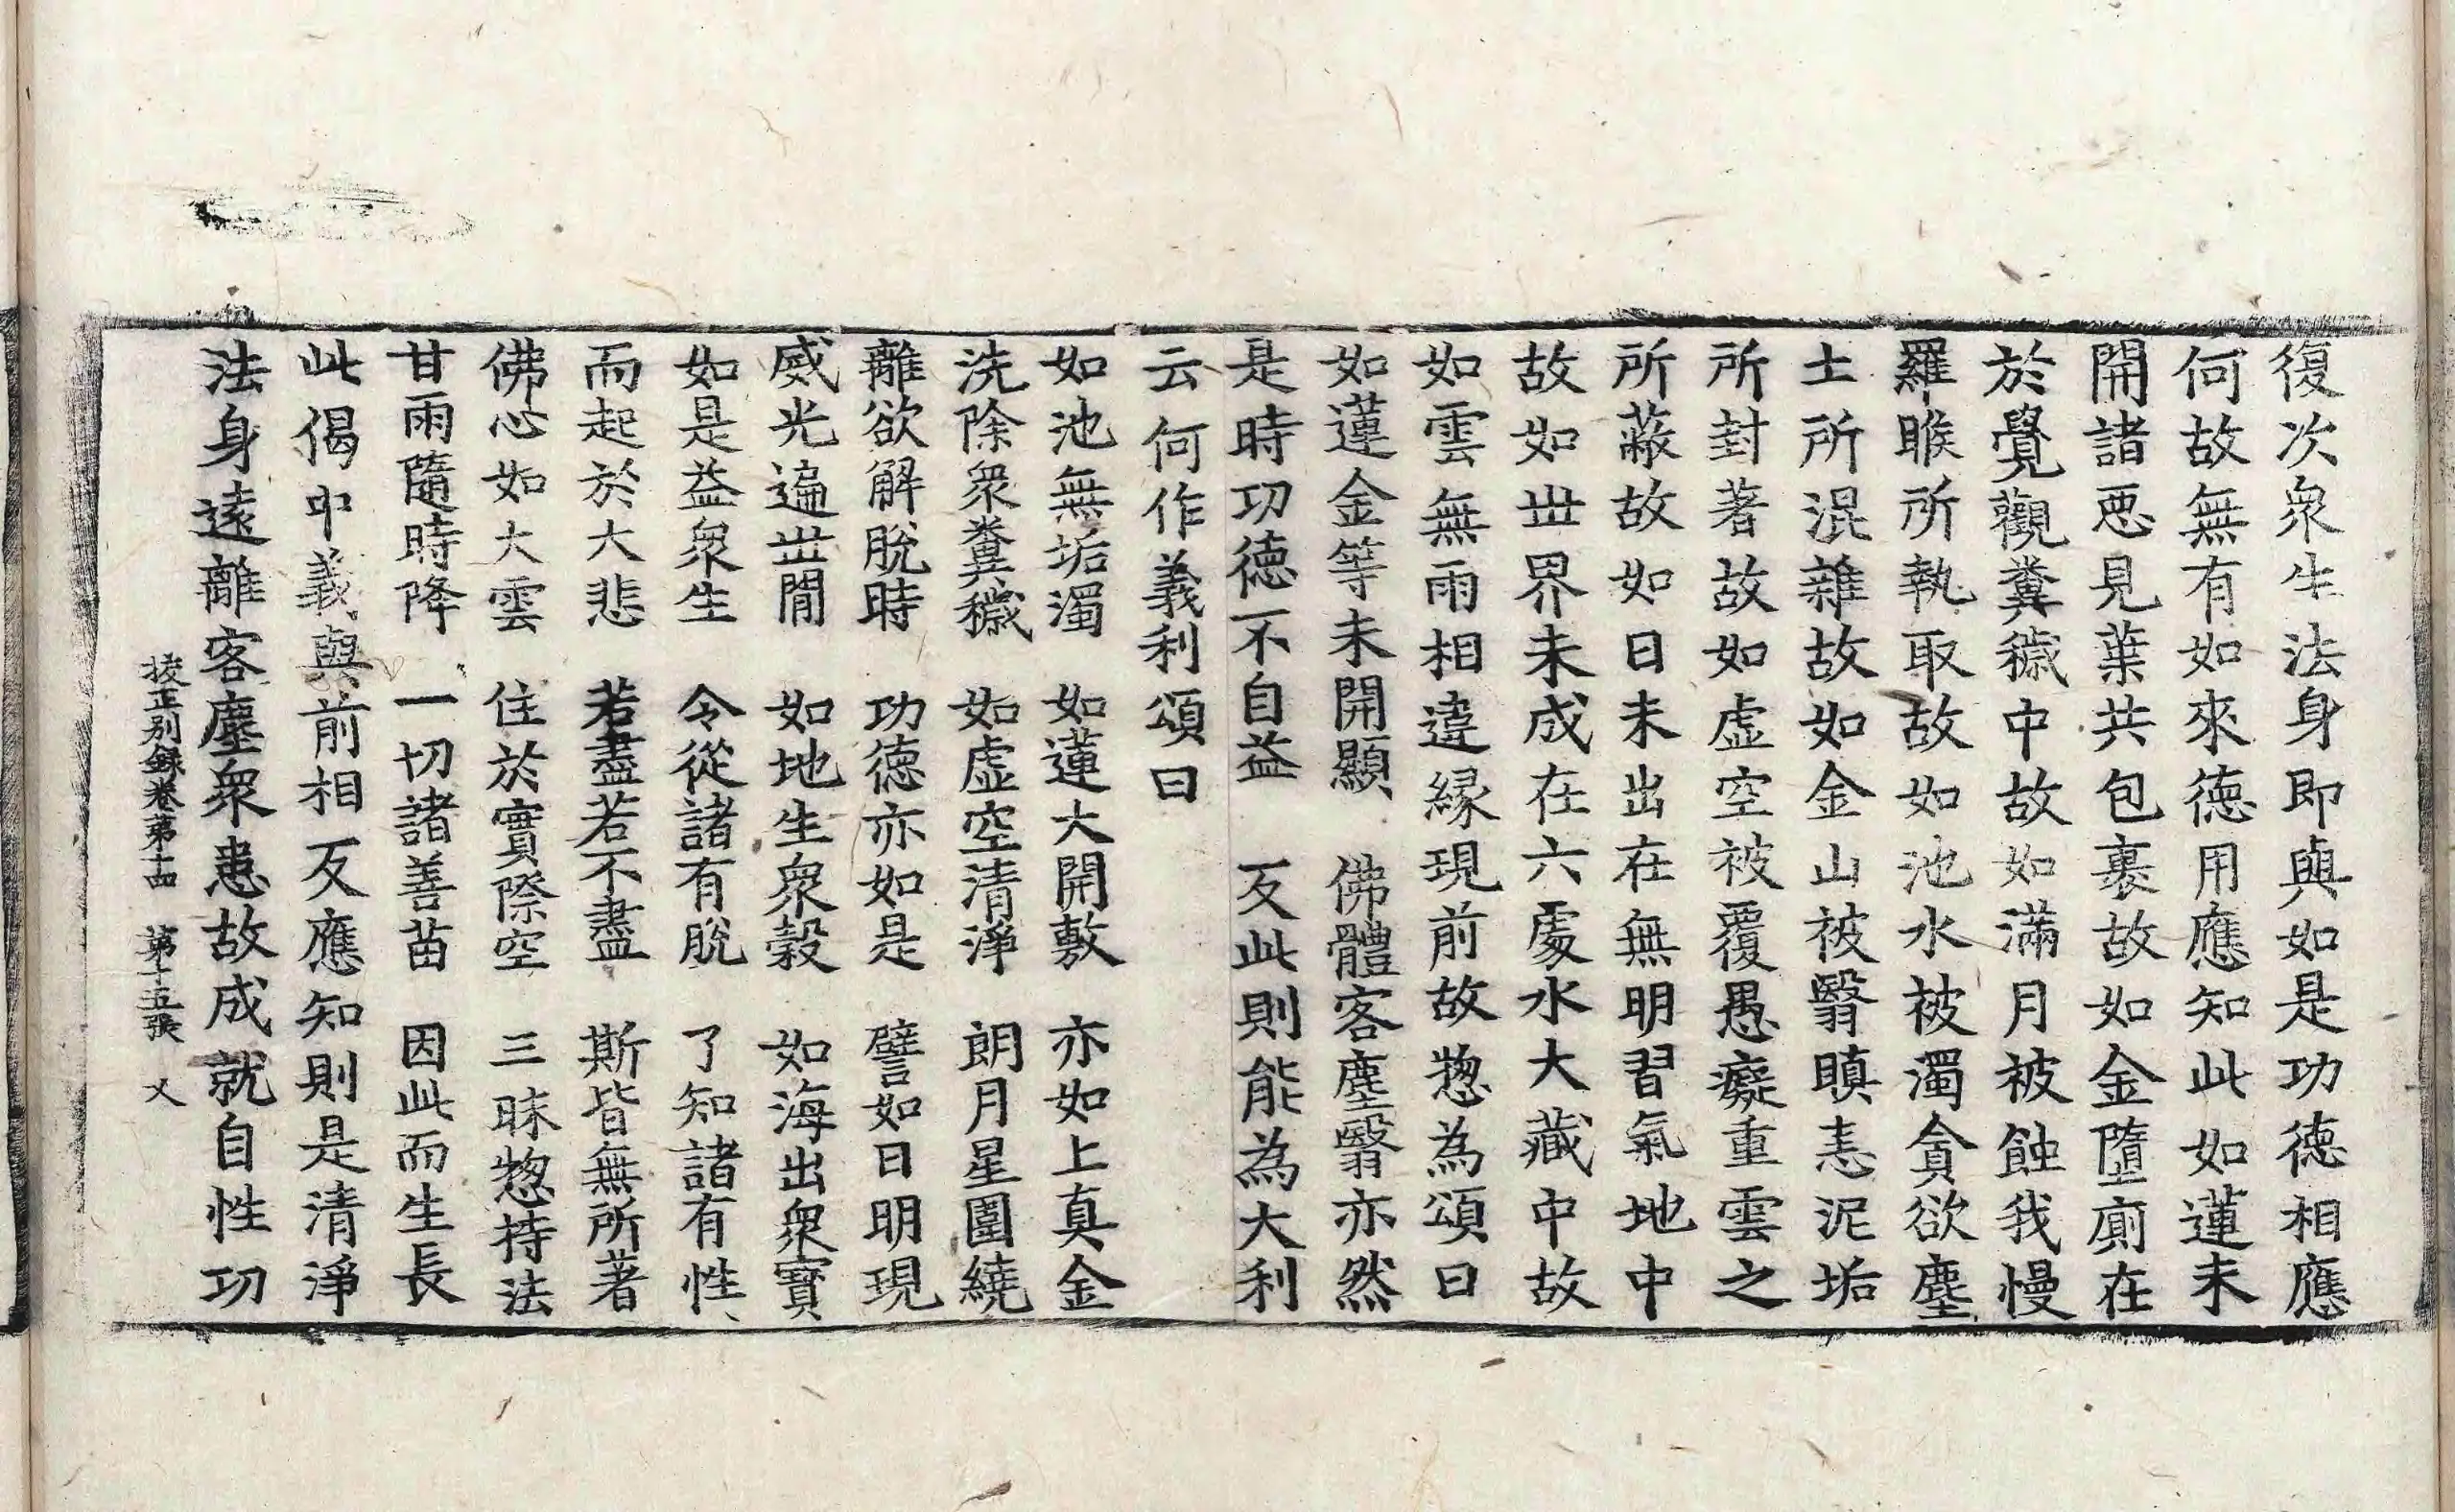 復次衆生法身即與如是功德相應
何故無有如來德用應知此如蓮未
開諸惡見葉共包裹故如金墮廁在
於覺觀糞穢中故如滿月被蝕我慢
羅睺所執取故如池水被濁貪欲塵
土所混雜故如金山被翳瞋恚泥垢
所封著故如虛空被覆愚癡重雲之
所蔽故如日未出在無明習氣地中
故如世界未成在六處水大藏中故
如雲無雨相違緣現前故惣為頌曰
如蓮金等未開顯　佛體客塵翳亦然
是時功德不自益　反此則能為大利
云何作義利頌曰
如池無垢濁　如蓮大開敷　亦如上真金
洗除衆糞穢　如虛空清淨　朗月星圍繞
離欲解脫時　功德亦如是　譬如日明現
威光遍世間　如地生衆穀　如海出衆寶
如是益衆生　令從諸有脫　了知諸有性
而起於大悲　若盡若不盡　斯皆無所著
佛心如大雲　住於實際空　三昧惣持法
甘雨隨時降　一切諸善苗　因此而生長
此偈中義與前相反應知則是清淨
法身遠離客塵衆患故成就自性功
挍正別錄卷第十四　第十五張　乂